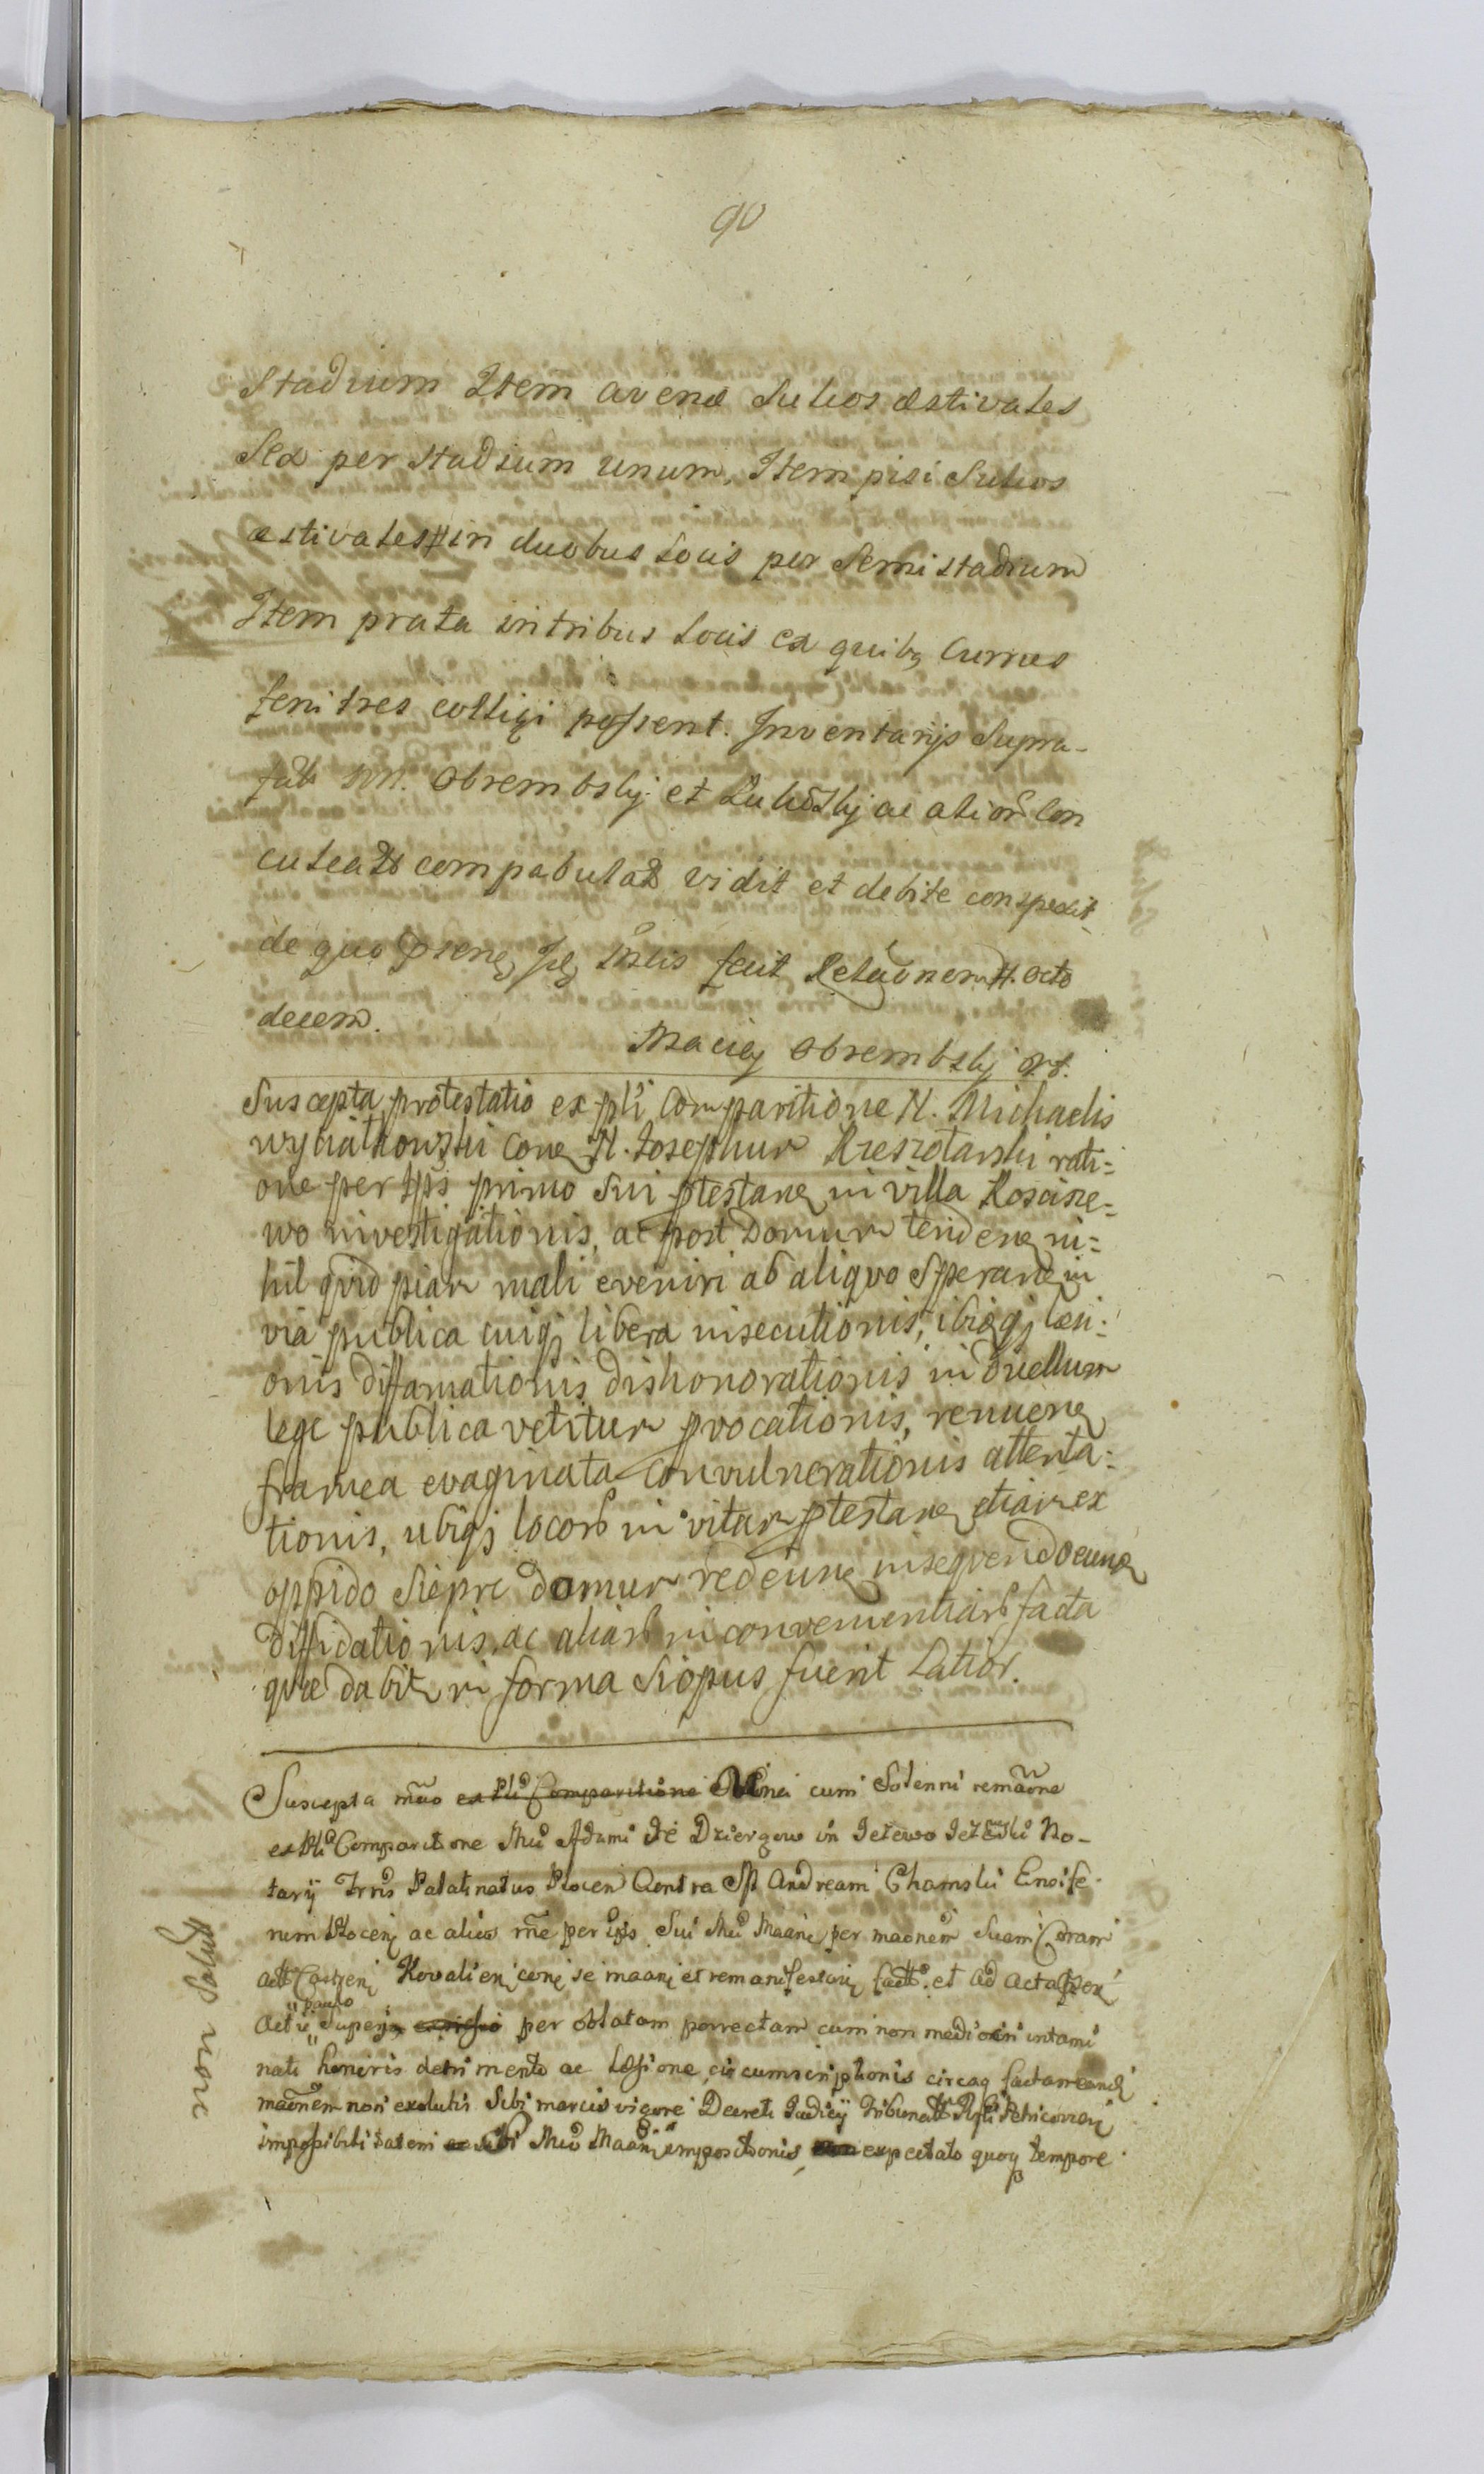 90
Stadium Item avenæ Sulcos æstivales
Sex per stadium unum, Item pisi Sulcos
æstivales in duobus Locis per Semistadium
Item prata in tribus Locis ex quibq Currus
feni tres colligi possent. Inventarijs Supra-
Obrembskij et ac alioru con
culcata compabulata vidit et debite conspexit
de quo fecit Relaõnem H. octo
decem.
Maciey Obrembskij
Suscepta protestatio ex pli Comparitione N. Michaelis
wyciałkowski Cone N. Josephum Kreszotarski rati=
one per Ips primo Sui ptestane in villa Koscisze=
wo investigationis, ac post Domum tendene ni=
hil quidpiam mali eveniri ab aliquo Sperane in
via publica cuiqj libera insecutionis, ibiqj læsi=
onis diffamationis dishonorationis in Duellum
lege publica vetitum pvocationis, renuene
framea evaginata Convulnerationis attenta=
tionis, ubiqj locorb in vitam ptestane etiam ex
oppido Siepre domum redeune insequendo eune
Diffidationis, ac aliarb inconvenientiarb facta
quæ dabitr in forma Si opus fuerit Latior.
Suscepta mão ex Pli Comparitione cum Solenni remãone
ex Pli Comparitione Mci Adami de Dziergowo in Jeżewo Jeżewski No-
tarij Trris Palatinatus Plocen Contra Mf Andream Chamski Ensife-
rum Plocen ac alios rñe per Ips Sui Mci Maane per maonem Suam Coram
actis Castren Kovalien cone se maane et remanifestari factb et ad acta
Actu paulo Superi per oblatam porrectam cum non mediocri intami
nati honoris detrimento ac Læsione, circumscriptionis circaq factam eandem
maõnem non exolutis Sibi marcis vigore Decreti Judicij Tribunatt Rgni Petricovien
impossibilitatem Sibi Mco Maani impositionis, expectato quoq tempore
Solut non